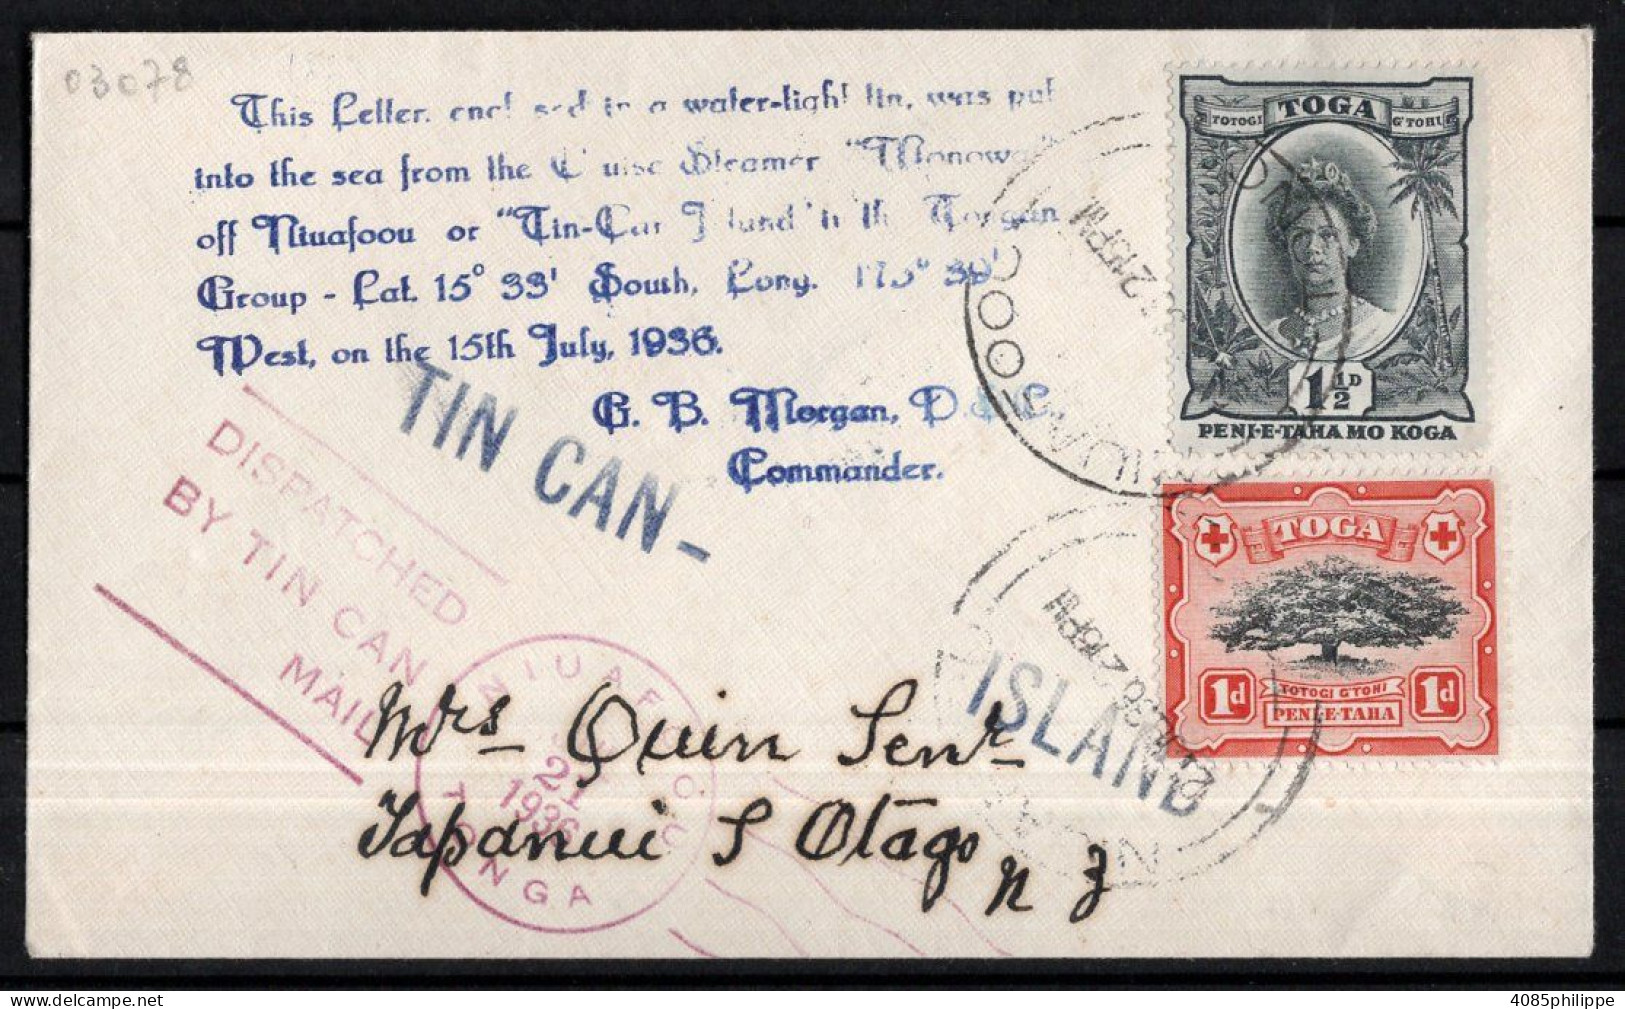 03078
This Letter, enclosed in a water-tight tin, was put
into the sea from the Cruise Steamer "Monowai"
off Niuafoou or "Tin-Can Island" in the Tongan
Group - Lat. 15° 33' South, Long. 175° 39'
West, on the 15th July, 1936.
G. B. Morgan, D.S.C.
Commander.
TIN CAN -
ISLAND
DISPATCHED
BY TIN CAN
MAIL
NIUAFOOU
21
1936
TONGA
Mrs Quin Senr
Tapanui S Otago
N Z
TOGA
TOTOGI
G'TOHI
1½D
PENI-E-TAHA MO KOGA
TOGA
TOTOGI G'TOHI
1d
1d
PENI-E-TAHA
4085philippe